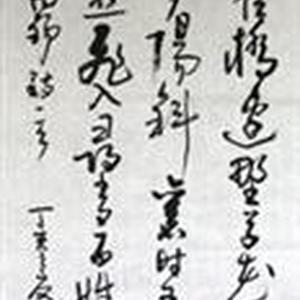 雀橋边野草花
夕陽斜舊時王
燕飛入尋常百姓
禹錫詩一首 丁亥